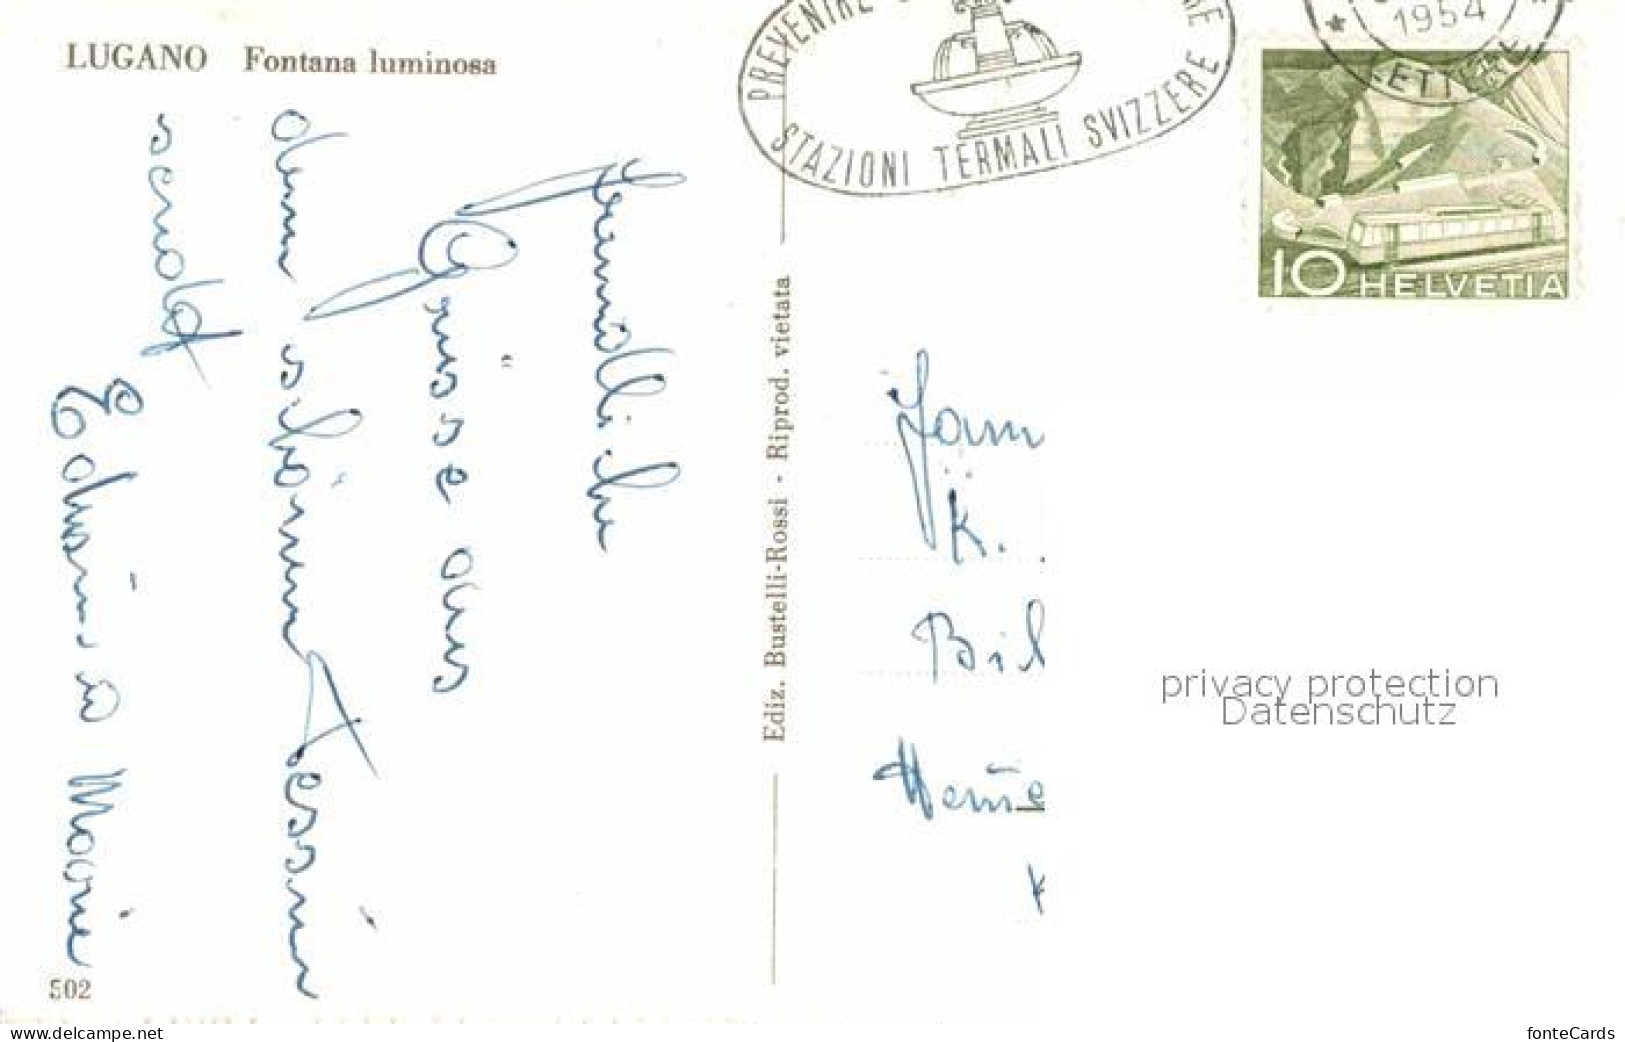 LUGANO Fontana luminosa
PREVENIRE
STAZIONI TERMALI SVIZZERE
1954
LETTERE
10 HELVETIA
Freundliche
Grüsse aus
dem schönen Tessin
sendet
Edwin u Marie
Ediz. Bustelli-Rossi - Riprod. vietata
Fam
K.
Bil
502
privacy protection
Datenschutz
www.delcampe.net
fonteCards